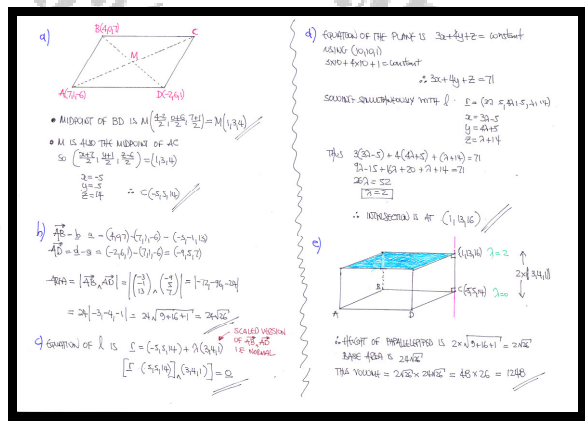 a)
B(4,0,7)
C
M
A(7,1,-6)
D(-2,6,1)
• MIDPOINT OF BD IS M(4-2/2, 0+6/2, 7+1/2) = M(1,3,4)
• M IS ALSO THE MIDPOINT OF AC
SO (x+7/2, y+1/2, z-6/2) = (1,3,4)
x=-5
y=5
z=14
∴ C(-5,5,14)
b) AB = b-a = (4,0,7)-(7,1,-6) = (-3,-1,13)
AD = d-a = (-2,6,1)-(7,1,-6) = (-9,5,7)
AREA = |AB ∧ AD| = |(-3 -1 13) ∧ (-9 5 7)| = |-72,-96,-24|
= 24|-3,-4,-1| = 24√9+16+1 = 24√26
c) EQUATION OF l IS r = (-5,5,14) + λ(3,4,1)
SCALED VERSION
OF AB∧AD
I.E NORMAL
[r-(-5,5,14)]∧(3,4,1) = 0
d) EQUATION OF THE PLANE IS 3x+4y+z = constant
USING (10,10,1)
3×10+4×10+1 = constant
∴ 3x+4y+z=71
SOLVING SIMULTANEOUSLY WITH l : r = (3λ-5, 4λ+5, λ+14)
x=3λ-5
y=4λ+5
z=λ+14
THUS 3(3λ-5)+4(4λ+5)+(λ+14)=71
9λ-15+16λ+20+λ+14=71
26λ=52
λ=2
∴ INTERSECTION IS AT (1,13,16)
e)
(1,13,16) λ=2
2×|3,4,1|
B
C(-5,5,14) λ=0
A
D
∴ HEIGHT OF PARALLELEPIPED IS 2×√9+16+1 = 2√26
BASE AREA IS 24√26
THUS VOLUME = 2√26 × 24√26 = 48×26 = 1248